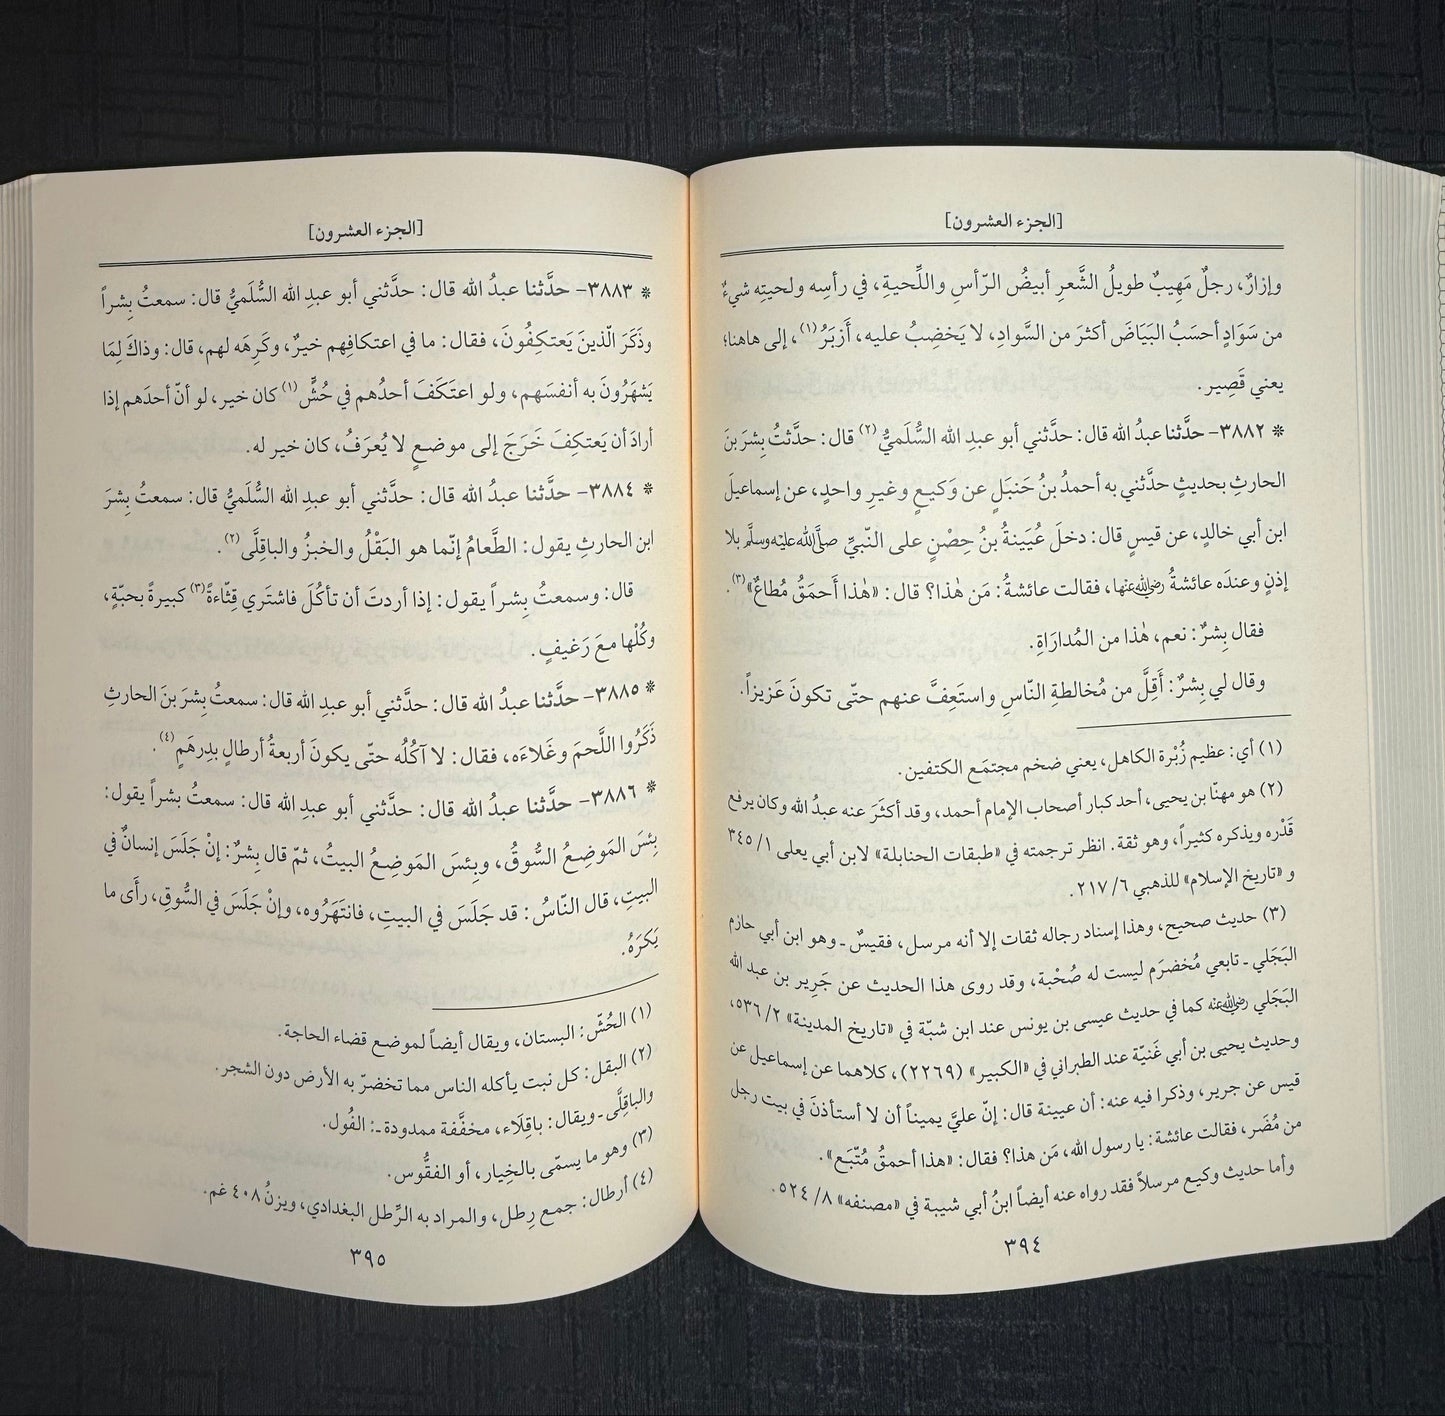 [الجزء العشرون]
وإزارٌ، رجلٌ مَهِيبٌ طويلُ الشَّعرِ أبيضُ الرّأسِ واللِّحيةِ، في رأسِه ولحيتِه شيءٌ
من سَوَادٍ أحسَبُ البَيَاضَ أكثرَ من السَّوادِ، لا يَخضِبُ عليه، أَزبَرُ(١)، إلى هاهنا؛
يعني قَصِير.
* ٣٨٨٢- حدَّثنا عبدُ الله قال: حدَّثني أبو عبدِ الله السُّلَميُّ(٢) قال: حدَّثتُ بِشرَ بنَ
الحارثِ بحديثٍ حدَّثني به أحمدُ بنُ حَنبَلٍ عن وَكيعٍ وغيرِ واحدٍ، عن إسماعيلَ
ابن أبي خالدٍ، عن قيسٍ قال: دخلَ عُيَينةُ بنُ حِصْنٍ على النّبيِّ صلَّى الله عليه وسلَّم بلا
إذنٍ وعندَه عائشةُ رضي الله عنها، فقالت عائشةُ: مَن هٰذا؟ قال: «هٰذا أَحمَقُ مُطاعٌ»(٣).
فقال بِشرٌ: نعم، هٰذا من المُدارَاةِ.
وقال لي بِشرٌ: أَقِلَّ من مُخالطةِ النّاسِ واستَعِفَّ عنهم حتّى تكونَ عَزيزاً.
(١) أي: عظيم زُبْرة الكاهل، يعني ضخم مجتمَع الكتفين.
(٢) هو مهنّا بن يحيى، أحد كبار أصحاب الإمام أحمد، وقد أكثَرَ عنه عبدُ الله وكان يرفع
قَدْره ويذكره كثيراً، وهو ثقة. انظر ترجمته في «طبقات الحنابلة» لابن أبي يعلى ١/ ٣٤٥
و «تاريخ الإسلام» للذهبي ٦/ ٢١٧.
(٣) حديث صحيح، وهذا إسناد رجاله ثقات إلا أنه مرسل، فقيسٌ ـ وهو ابن أبي حازم
البَجَلي ـ تابعي مُخضرَم ليست له صُحْبة، وقد روى هذا الحديث عن جَرِير بن عبد الله
البَجَلي رضي الله عنه كما في حديث عيسى بن يونس عند ابن شبّة في «تاريخ المدينة» ٢/ ٥٣٦،
وحديث يحيى بن أبي غَنيّة عند الطبراني في «الكبير» (٢٢٦٩)، كلاهما عن إسماعيل عن
قيس عن جرير، وذكرا فيه عنه: أن عيينة قال: إنّ عليَّ يميناً أن لا أستأذنَ في بيت رجل
من مُضَر، فقالت عائشة: يا رسول الله، مَن هذا؟ فقال: «هذا أحمقُ مُتّبَع».
وأما حديث وكيع مرسلاً فقد رواه عنه أيضاً ابنُ أبي شيبة في «مصنفه» ٨/ ٥٢٤.
٣٩٤
[الجزء العشرون]
* ٣٨٨٣- حدَّثنا عبدُ الله قال: حدَّثني أبو عبدِ الله السُّلَميُّ قال: سمعتُ بِشراً
وذَكَرَ الّذينَ يَعتكِفُونَ، فقال: ما في اعتكافِهم خيرٌ، وكَرِهَه لهم، قال: وذاكَ لِمَا
يَشهَرُونَ به أنفسَهم، ولو اعتَكَفَ أحدُهم في حُشٍّ(١) كان خير، لو أنّ أحدَهم إذا
أرادَ أن يَعتكِفَ خَرَجَ إلى موضعٍ لا يُعرَفُ، كان خير له.
* ٣٨٨٤- حدَّثنا عبدُ الله قال: حدَّثني أبو عبدِ الله السُّلَميُّ قال: سمعتُ بِشرَ
ابن الحارثِ يقول: الطَّعامُ إنّما هو البَقْلُ والخبزُ والباقِلَّى(٢).
قال: وسمعتُ بِشراً يقول: إذا أردتَ أن تأكُلَ فاشتَري قِثّاءةً(٣) كبيرةً بحبّةٍ،
وكُلْها معَ رَغيفٍ.
* ٣٨٨٥- حدَّثنا عبدُ الله قال: حدَّثني أبو عبدِ الله قال: سمعتُ بِشرَ بنَ الحارثِ
ذَكَرُوا اللَّحمَ وغَلاءَه، فقال: لا آكُلُه حتّى يكونَ أربعةُ أرطالٍ بدِرهَمٍ(٤).
* ٣٨٨٦- حدَّثنا عبدُ الله قال: حدَّثني أبو عبدِ الله قال: سمعتُ بشراً يقول:
بِئسَ المَوضِعُ السُّوقُ، وبِئسَ المَوضِعُ البيتُ، ثمّ قال بِشرٌ: إنْ جَلَسَ إنسانٌ في
البيتِ، قال النّاسُ: قد جَلَسَ في البيتِ، فانتَهَرُوه، وإنْ جَلَسَ في السُّوقِ، رأَى ما
يَكرَهُ.
(١) الحُشّ: البستان، ويقال أيضاً لموضع قضاء الحاجة.
(٢) البقل: كل نبت يأكله الناس مما تخضرّ به الأرض دون الشجر.
والباقِلَّى ـ ويقال: باقِلَاء، مخفَّفة ممدودة ـ: الفُول.
(٣) وهو ما يسمّى بالخِيار، أو الفقُّوس.
(٤) أرطال: جمع رِطل، والمراد به الرِّطل البغدادي، ويزنُ ٤٠٨ غم.
٣٩٥